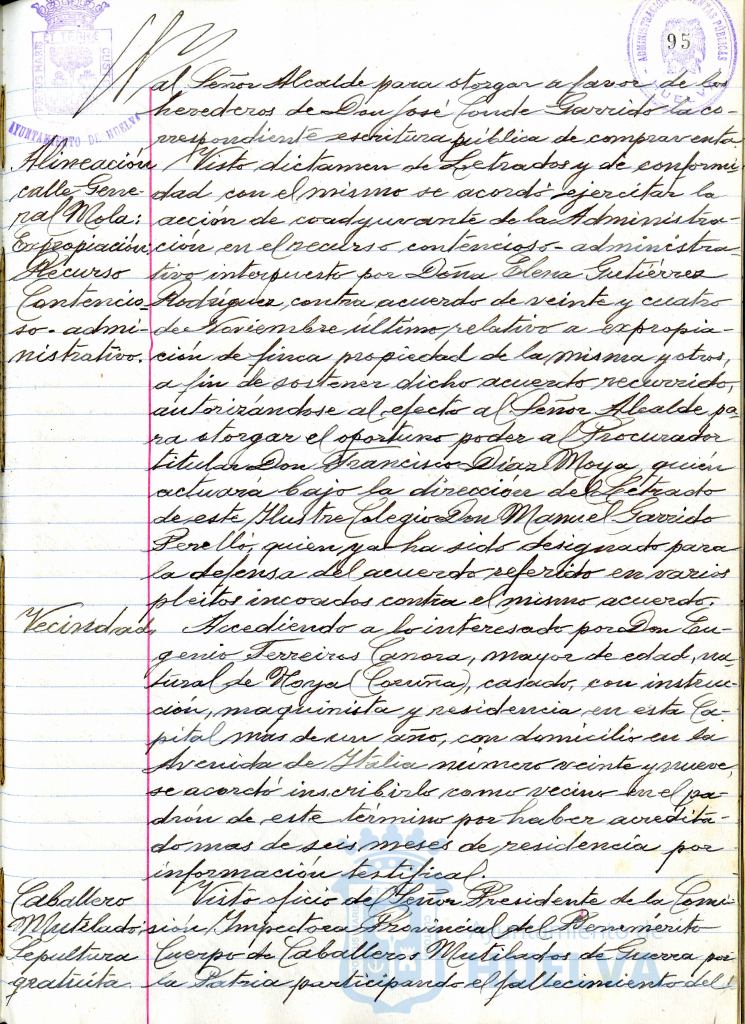 ADMINISTRACION DE RENTAS PÚBLICAS
HUELVA
95
AYUNTAMIENTO DE HUELVA
al Señor Alcalde para otorgar a favor de los
herederos de Don José Conde Garrido la co-
rrespondiente escritura pública de compraventa.
Alineación
calle Gene-
ral Mola:
Expropiación,
Recurso
Contencio-
so-admi-
nistrativo.
Visto dictamen de Letrados y de conformi-
dad con el mismo se acordó ejercitar la
acción de coadyuvante de la Administra-
ción en el recurso contencioso-administra-
tivo interpuesto por Doña Elena Gutiérrez
Rodríguez, contra acuerdo de veinte y cuatro
de Noviembre último, relativo a expropia-
ción de finca propiedad de la misma y otros,
a fin de sostener dicho acuerdo recurrido,
autorizándose al efecto al Señor Alcalde pa-
ra otorgar el oportuno poder al Procurador
titular Don Francisco Díaz Moya, quién
actuará bajo la dirección del Letrado
de este Ilustre Colegio Don Manuel Garrido
Perelló, quien ya ha sido designado para
la defensa del acuerdo referido en varios
pleitos incoados contra el mismo acuerdo.
Vecindad,
Accediendo a lo interesado por Don Eu-
genio Ferreiros Canora, mayor de edad, na-
tural de Noya (Coruña), casado, con instruc-
ción, maquinista y residencia en esta Ca-
pital mas de un año, con domicilio en la
Avenida de Italia número veinte y nueve,
se acordó inscribirlo como vecino en el pa-
drón de este término por haber acredita-
do mas de seis meses de residencia por
información testifical.
Caballero
Mutilado:
Sepultura
gratuita.
Visto oficio del Señor Presidente de la Comi-
sión Inspectora Provincial del Benemérito
Cuerpo de Caballeros Mutilados de Guerra por
la Patria participando el fallecimiento del
Ayuntamiento de
HUELVA